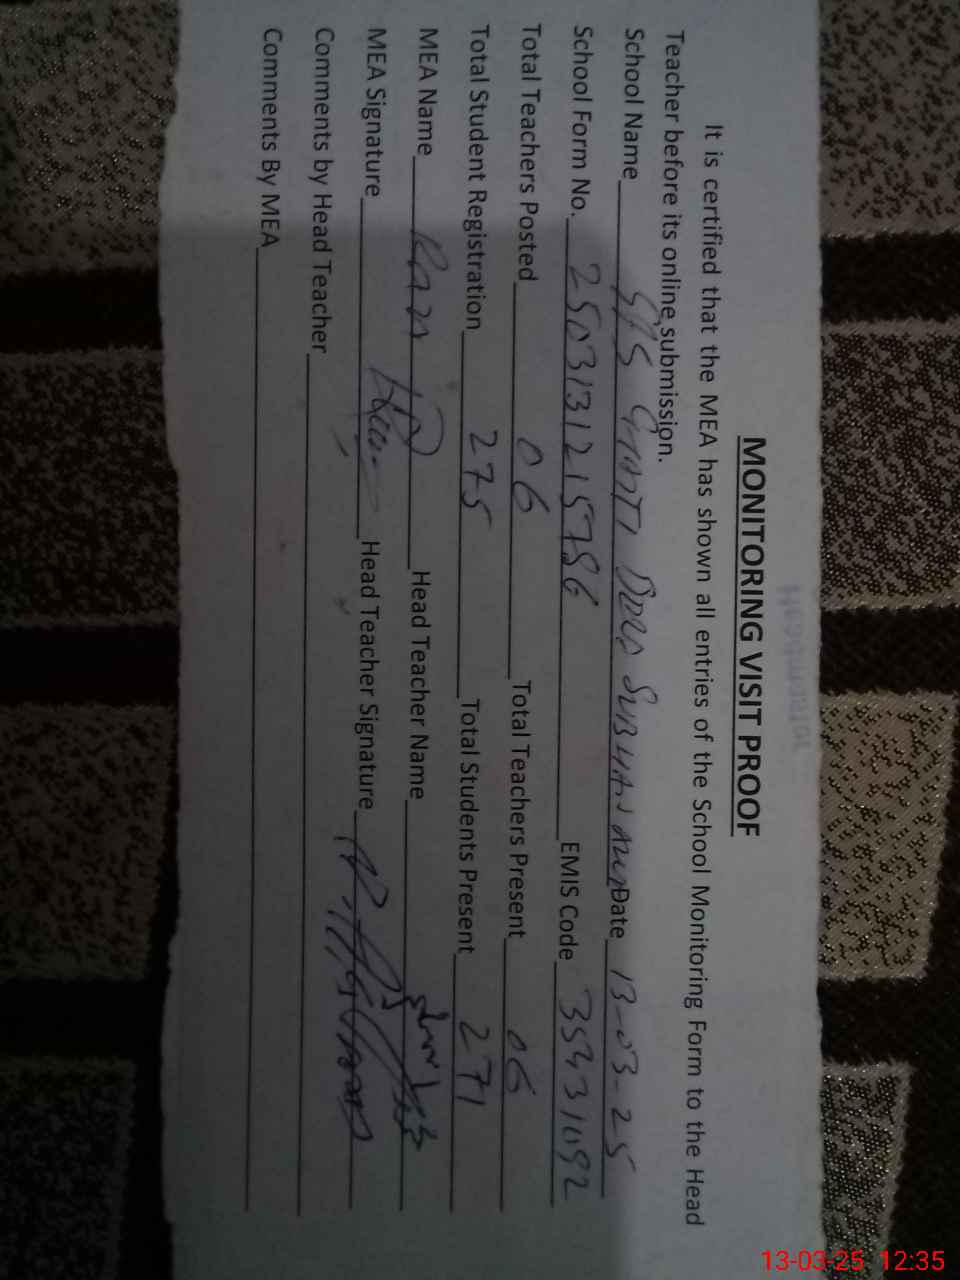 MONITORING VISIT PROOF
It is certified that the MEA has shown all entries of the School Monitoring Form to the Head
Teacher before its online submission.
School Name GPS Date 13-03-25
School Form No. 25031312 15786 EMIS Code 35431092
Total Teachers Posted 06 Total Teachers Present 06
Total Student Registration 275 Total Students Present 271
MEA Name Head Teacher Name
MEA Signature Head Teacher Signature
Comments by Head Teacher
Comments By MEA
13-03-25 12:35